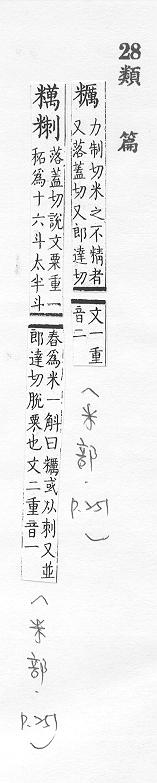 28類 篇
糲 力制切米之不精者 文一重
又落蓋切又郎達切 音二
(米部.
p.251)
糲𥻝 落蓋切說文粟重一 舂爲米一斛曰糲或从剌又並
䄷爲十六斗太半斗 郎達切脫粟也文二重音一
(米部.
p.251)